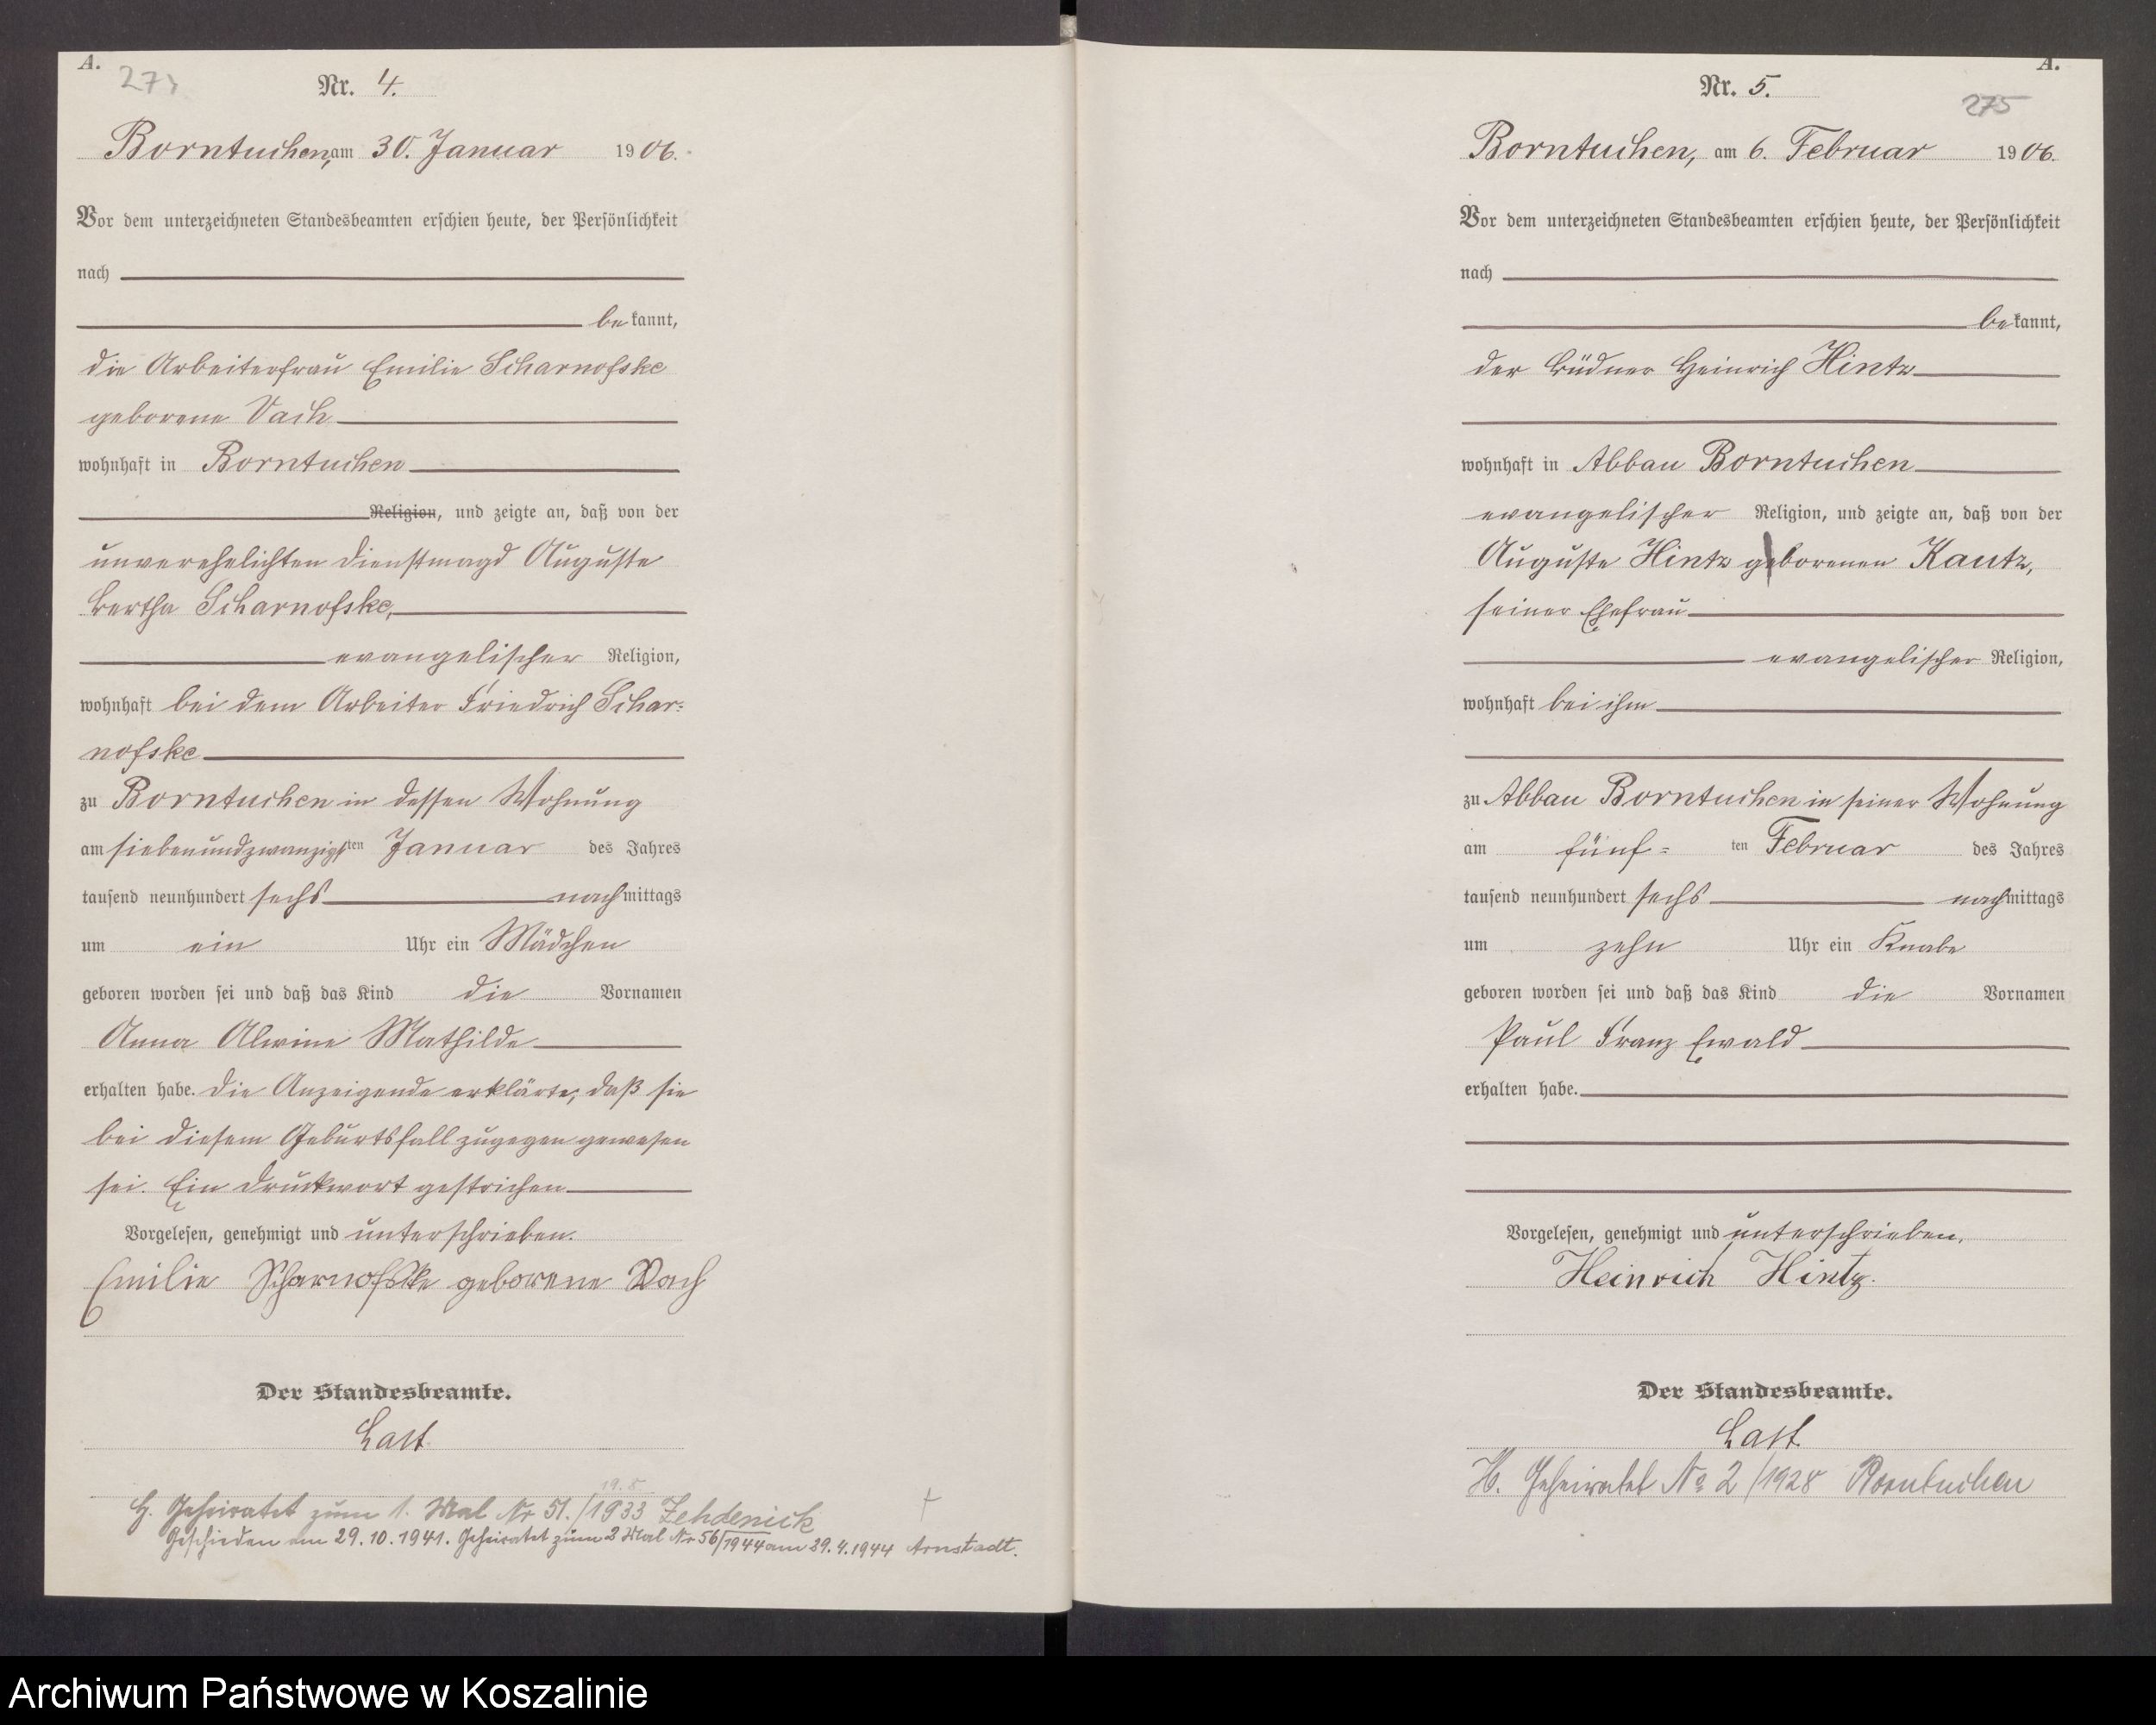 A.
Nr. 4.
Borntuchen, am 30. Januar 1906.
Vor dem unterzeichneten Standesbeamten erschien heute, der Persönlichkeit
nach
bekannt,
die Arbeiterfrau Emilie Scharnofske
geborene Vach
wohnhaft in Borntuchen
Religion, und zeigte an, daß von der
unverehelichten Dienstmagd Auguste
Bertha Scharnofske,
evangelischer Religion,
wohnhaft bei dem Arbeiter Friedrich Schar=
nofske
zu Borntuchen in dessen Wohnung
am siebenundzwanzigsten Januar des Jahres
tausend neunhundert sechs nachmittags
um ein Uhr ein Mädchen
geboren worden sei und daß das Kind die Vornamen
Anna Alwine Mathilde
erhalten habe. Die Anzeigende erklärte, daß sie
bei diesem Geburtsfall zugegen gewesen
sei. Ein Druckwort gestrichen
Vorgelesen, genehmigt und unterschrieben.
Emilie Scharnofske geborene Vach
Der Standesbeamte.
Last
19.8
H. Geheiratet zum 1. Mal Nr 51./1933 Zehdenick
Geschieden am 29.10.1941. Geheiratet zum 2 Mal Nr 56/1944 am 29.4.1944 Arnstadt.
A.
Nr. 5.
275
Borntuchen, am 6. Februar 1906.
Vor dem unterzeichneten Standesbeamten erschien heute, der Persönlichkeit
nach
bekannt,
der Büdner Heinrich Hintz
wohnhaft in Abbau Borntuchen
evangelischer Religion, und zeigte an, daß von der
Auguste Hintz geborenen Kautz,
seiner Ehefrau
evangelischer Religion,
wohnhaft bei ihm
zu Abbau Borntuchen in seiner Wohnung
am fünf=ten Februar des Jahres
tausend neunhundert sechs nachmittags
um zehn Uhr ein Knabe
geboren worden sei und daß das Kind die Vornamen
Paul Franz Ewald
erhalten habe.
Vorgelesen, genehmigt und unterschrieben.
Heinrich Hintz.
Der Standesbeamte.
Last
H. Geheiratet No 2/1928 Borntuchen
Archiwum Państwowe w Koszalinie